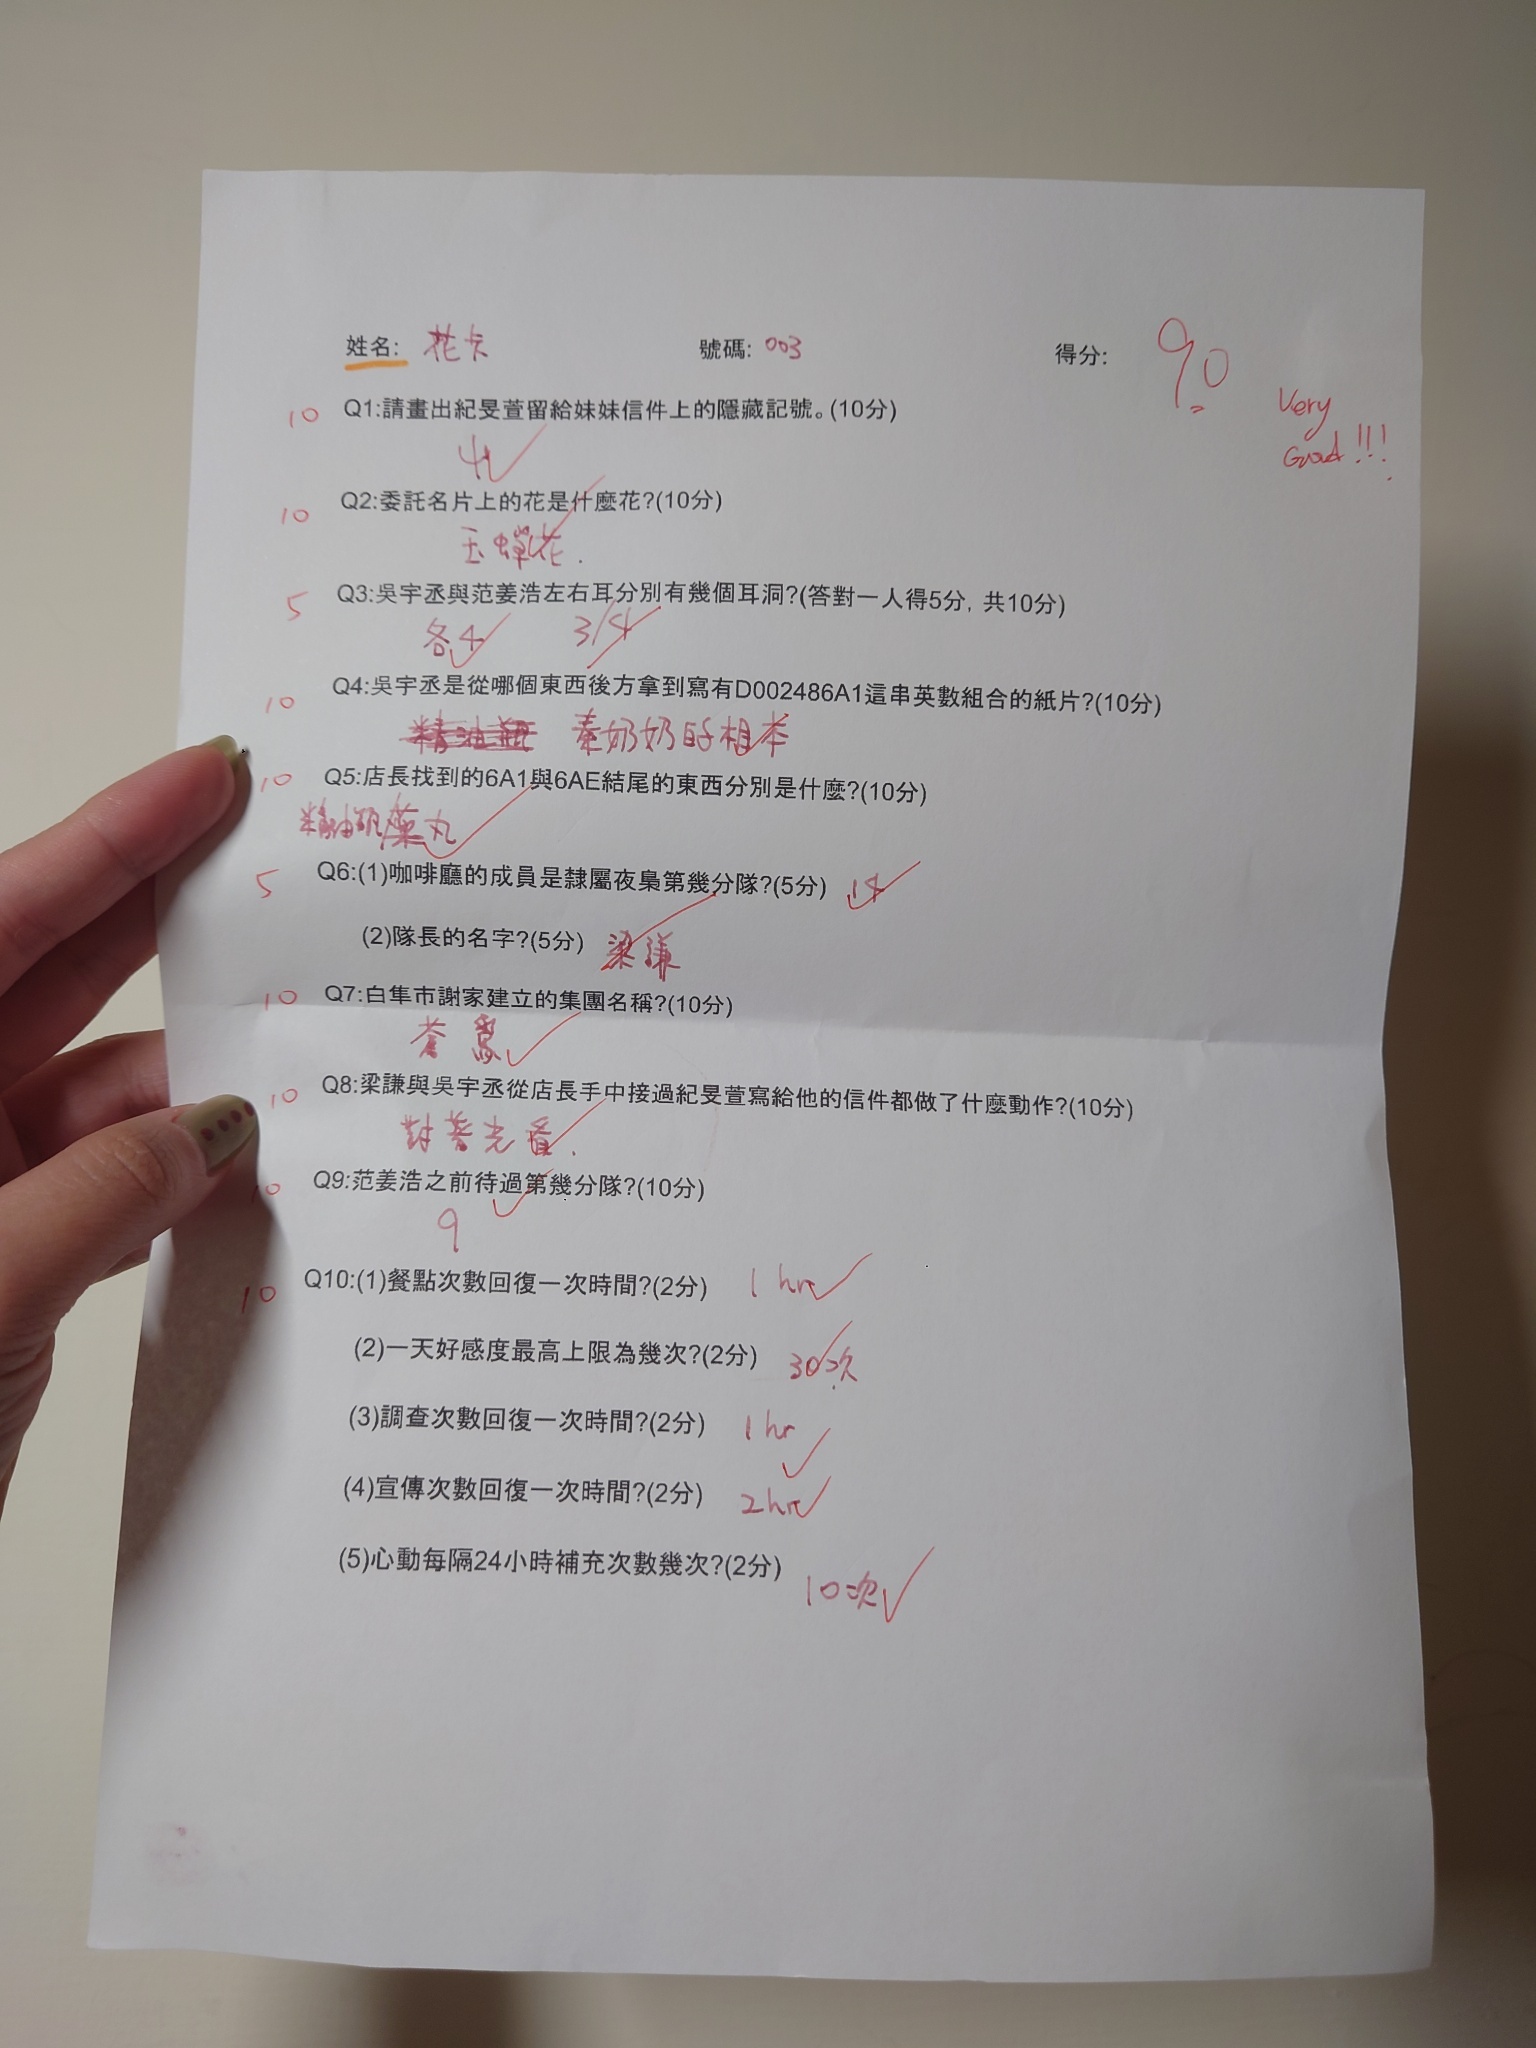 姓名: 花卡 號碼: 003 得分: 90
Very Good!!!
10 Q1:請畫出紀旻萱留給妹妹信件上的隱藏記號。(10分)
10 Q2:委託名片上的花是什麼花?(10分)
玉蟬花.
5 Q3:吳宇丞與范姜浩左右耳分別有幾個耳洞?(答對一人得5分, 共10分)
各4 3/4
10 Q4:吳宇丞是從哪個東西後方拿到寫有D002486A1這串英數組合的紙片?(10分)
精油瓶 秦奶奶的相本
10 Q5:店長找到的6A1與6AE結尾的東西分別是什麼?(10分)
精油瓶藥丸
5 Q6:(1)咖啡廳的成員是隸屬夜梟第幾分隊?(5分) 14
(2)隊長的名字?(5分) 梁謙
10 Q7:白隼市謝家建立的集團名稱?(10分)
蒼
10 Q8:梁謙與吳宇丞從店長手中接過紀旻萱寫給他的信件都做了什麼動作?(10分)
對著光看.
10 Q9:范姜浩之前待過第幾分隊?(10分)
9
10 Q10:(1)餐點次數回復一次時間?(2分) 1 hr
(2)一天好感度最高上限為幾次?(2分) 30次
(3)調查次數回復一次時間?(2分) 1 hr
(4)宣傳次數回復一次時間?(2分) 2 hr
(5)心動每隔24小時補充次數幾次?(2分) 10次